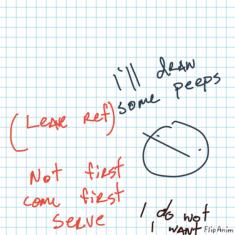 I'll draw
some peeps
(Leave ref)
Not first
come first
serve
I do not
want
FlipAnim